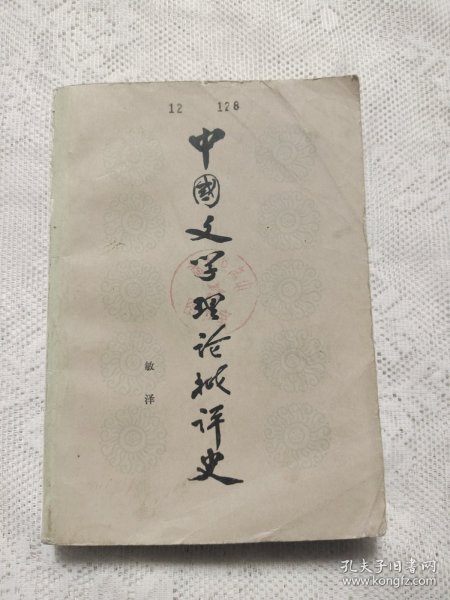 12 128
中國文学理论批评史
敏泽
孔夫子旧书网
www.kongfz.com